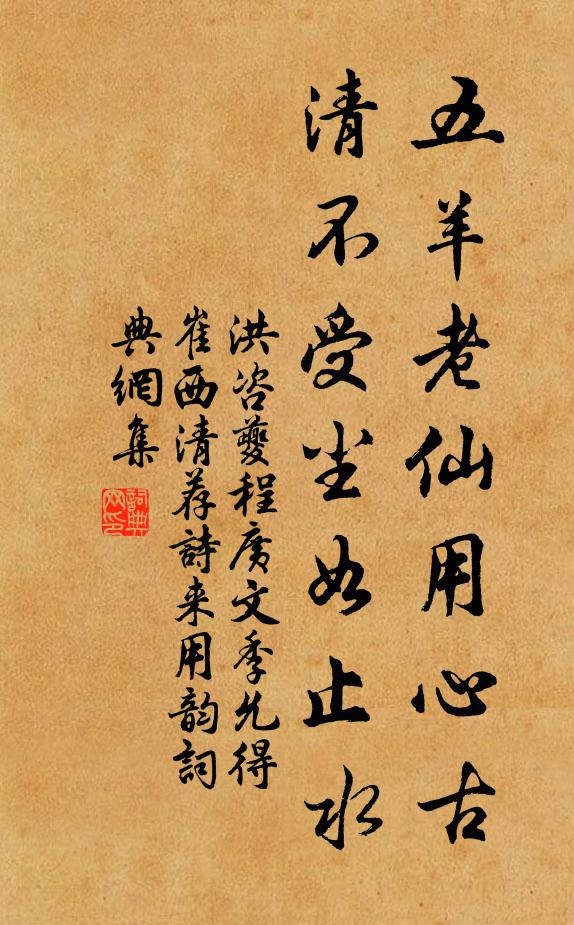 五羊老仙用心古
清不受尘如止水
洪咨夔程廣文季允得
崔西清荐詩来用韵詞
典網集
詞典
网印